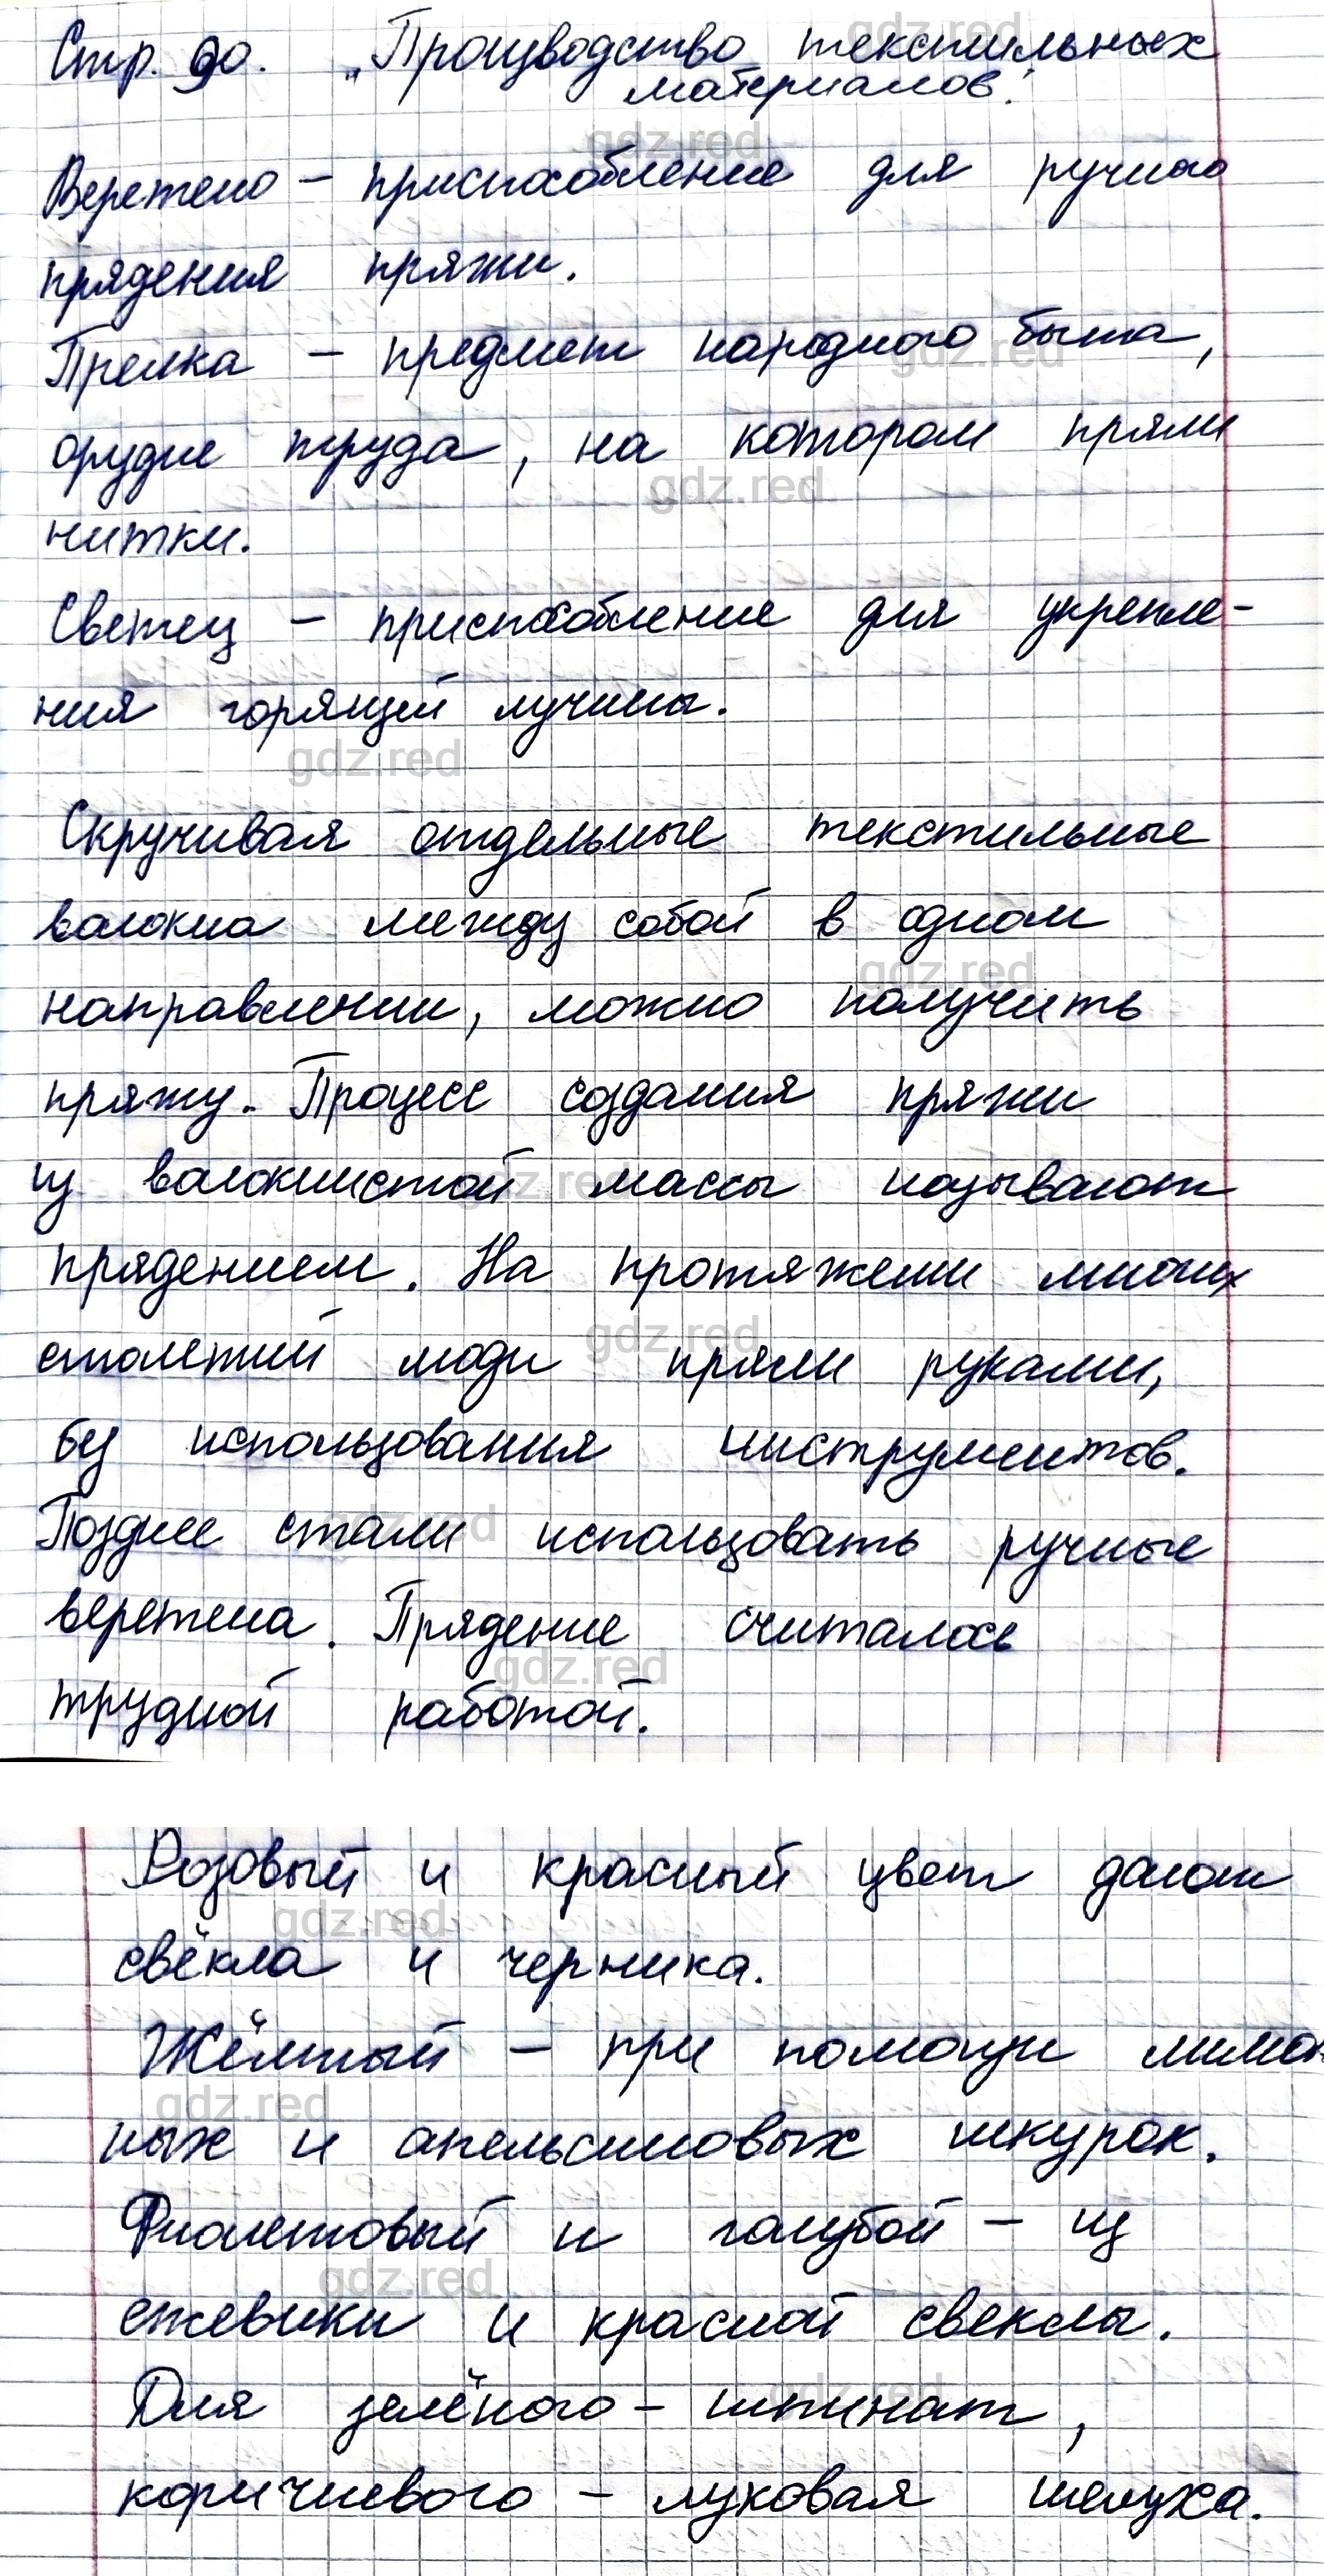 Стр. 90. „Производство текстильных
материалов".
Веретено – приспособление для ручного
прядения пряжи.
Прелка – предмет народного быта,
орудие труда, на котором пряли
нитки.
Светец – приспособление для укрепле-
ния горящей лучины.
Скручивая отдельные текстильные
волокна между собой в одном
направлении, можно получить
пряжу. Процесс создания пряжи
из волокнистой массы называют
прядением. На протяжении многих
столетий люди пряли руками,
без использования инструментов.
Позднее стали использовать ручные
веретена. Прядение считалось
трудной работой.
Розовый и красный цвет дают
свёкла и черника.
Жёлтый – при помощи лимон
ных и апельсиновых шкурок.
Фиолетовый и голубой – из
ежевики и красной свеклы.
Для зелёного – шпинат,
коричневого – луковая шелуха.
gdz.red
gdz.red
gdz.red
gdz.red
gdz.red
gdz.red
gdz.red
gdz.red
gdz.red
gdz.red
gdz.red
gdz.red
gdz.red
gdz.red